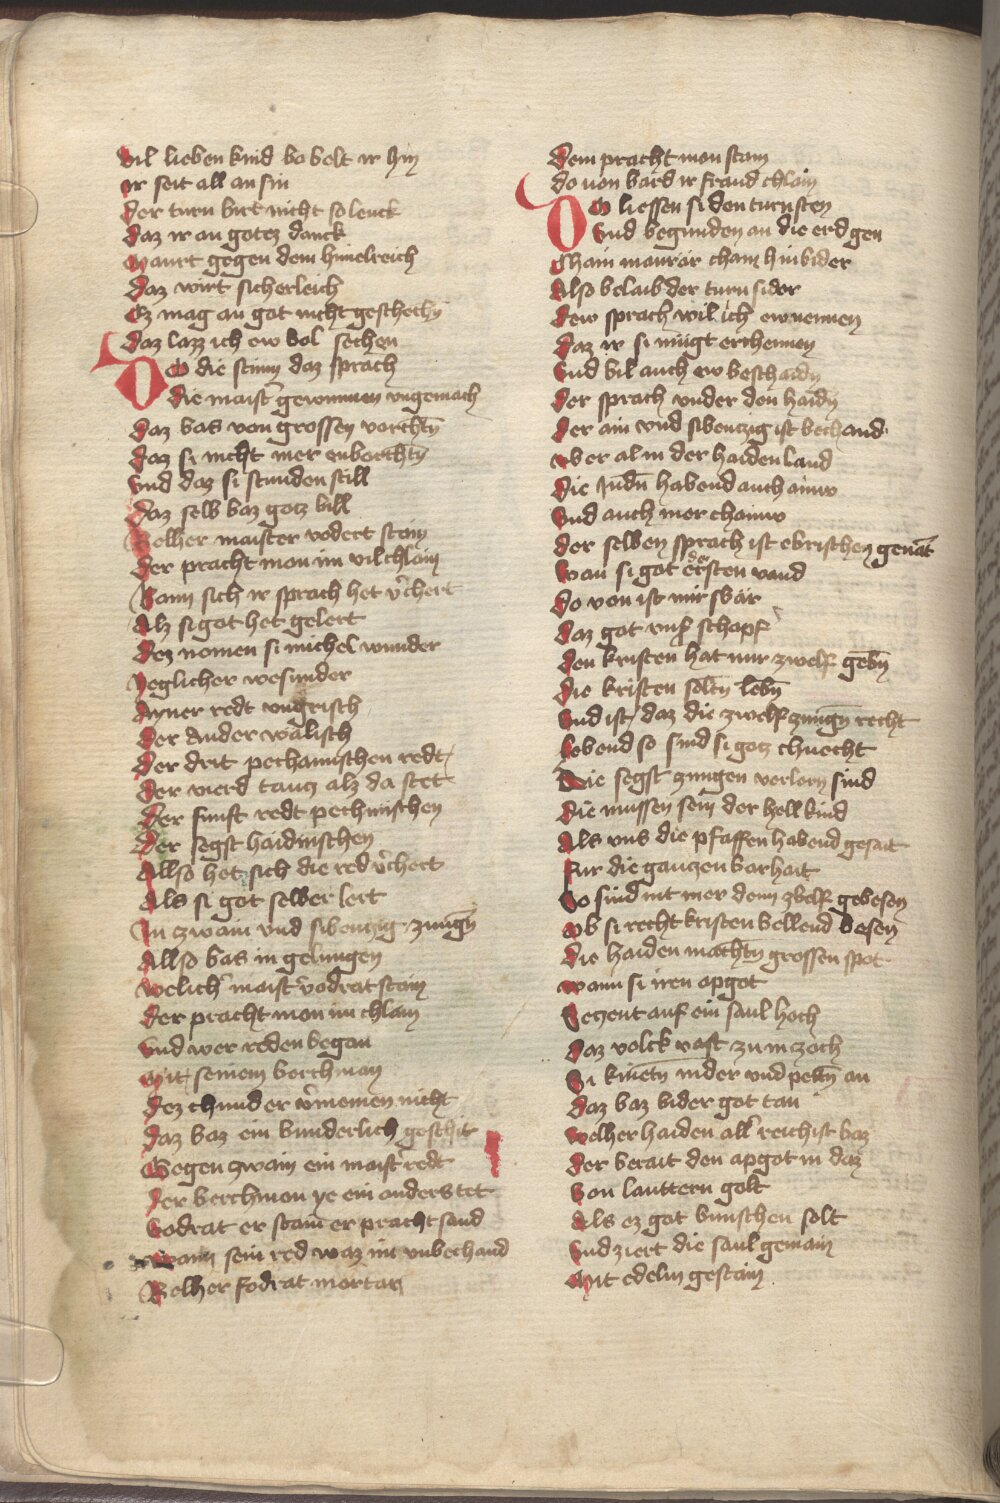 Vil lieben kind bo belt ir hin
Ir seit all an sin
Der turn birt nicht so lenck
Daz ir an gotez danck
Maurt gegen dem himelreich
Daz wirt sicherleich
Ez mag an got nicht geschechn̄
Daz lazz ich ew bol sechen
Do die stimm daz sprach
Die maist̓ gewunnen vngemach
Daz bas von grossen vorchtn̄
Daz si nicht mer enborchtn̄
Vnd daz si stunden still
Daz selb baz gotz bill
Belher maister vodert stain
Der pracht man im vil chlain
Wann sich ir sprach het v̓chert
Alz si got het gelert
Dez nomen si michel wunder
Yeglicher wesunder
Ayner redt vngrisch
Der Ander walisch
Der drit pechamischen redt
Der vierd taucz alz da stet
Der funft redt pechmischen
Der segst haidnischen
Allso het sich die red v̓chert
Als si got selber lert
In zwain vnd sibenczig zungn̄
Allso bas in gelungen
Welich̓ maist̓ vodrat stain
Der pracht man im chlain
Vnd wer reden began
Mit seinem berchman
Dez chund er v̓nemen nicht
Daz baz ein bunderlich geschit
Gegen zwain ein maist̓ redt
Der berchman ye ein anders tet
Vodrat er stain er pracht sand
Wann sein red waz im vnbechand
Belher fodrat mortar
Dem pracht man stain
Do von bard ir fraud chlain
Do liessen si den turn sten
Vnd begunden an die erd gen
Chain maurär cham hin bider
Also belaib der turn sider
Dew sprach wil ich ew nennen
Daz ir si mügt erchennen
Vnd bil auch ew beschaidn̄
Der sprach vnder den haidn̄
Der ain vnd sibenczig ist bechand
Vber al in der haiden land
Die Judn̄ habend auch ainew
Vnd auch mer chainew
Der selben sprach ist ebrischen genāt
Wan si got ersten vand
Do von ist mir sbär
Daz got vns̓ schopf̓
Den kristen hat nur zwelf gebn̄
Die kristen soltn̄ lebn̄
Vnd ist daz die zwelf zungn̄ recht
Lebend so sind si gotz chnecht
Die segst zungen verlorn sind
Die mussen sein der hell kind
Als vns die pfaffen habend gesait
Fur die ganczen barhait
So sind nit mer denn zbelf gebesen
Ob si recht kristen bellend besen
Die haiden machtn̄ grossen spot
Wann si iren apgot
Seczent auf ein saul hoch
Daz volck vast zu im zoch
Si knietn̄ nider vnd petn̄ an
Daz baz bider got tan
Welher haiden all̓ reichist baz
Der berait den apgot in daz
Von lauttern golt
Als ez got bunschen solt
Vnd ziert die saul gemain
Mit edelm gestain